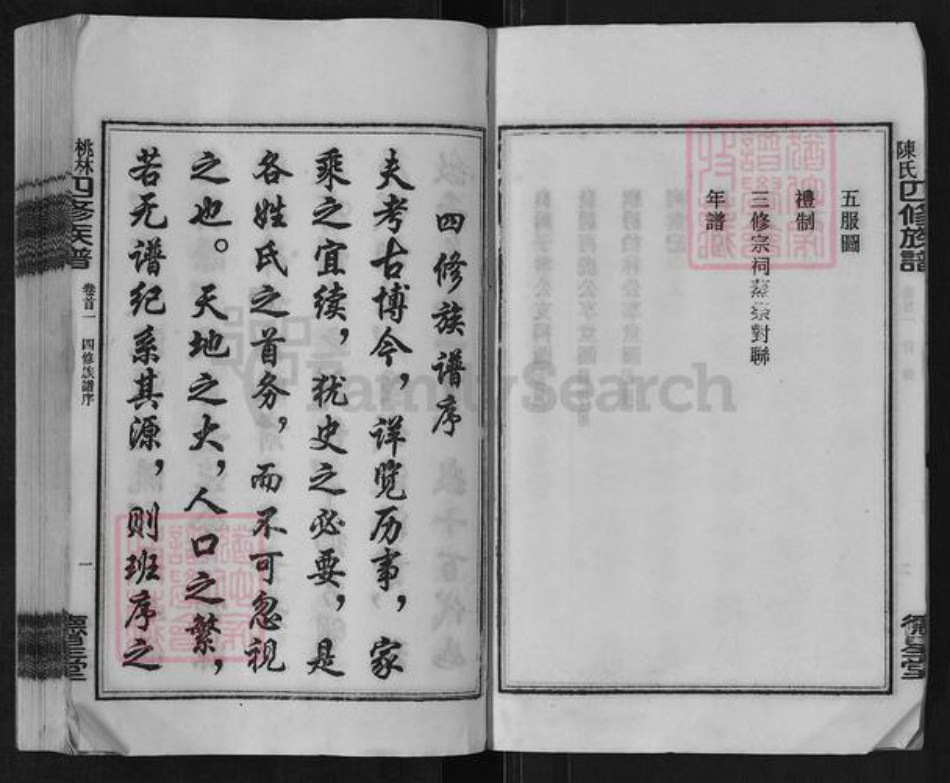 陳氏四修族譜
五服圖
禮制
三修宗祠蒸嘗對聯
年譜
二
德星堂
四修族谱序
夫考古博今，详览历事，家
乘之宜续，犹史之必要，是
各姓氏之首务，而不可忽视
之也。天地之大，人口之繁，
若无谱纪系其源，则班序之
桃林四修族譜
卷首一 四修族譜序
一
德星堂
FamilySearch